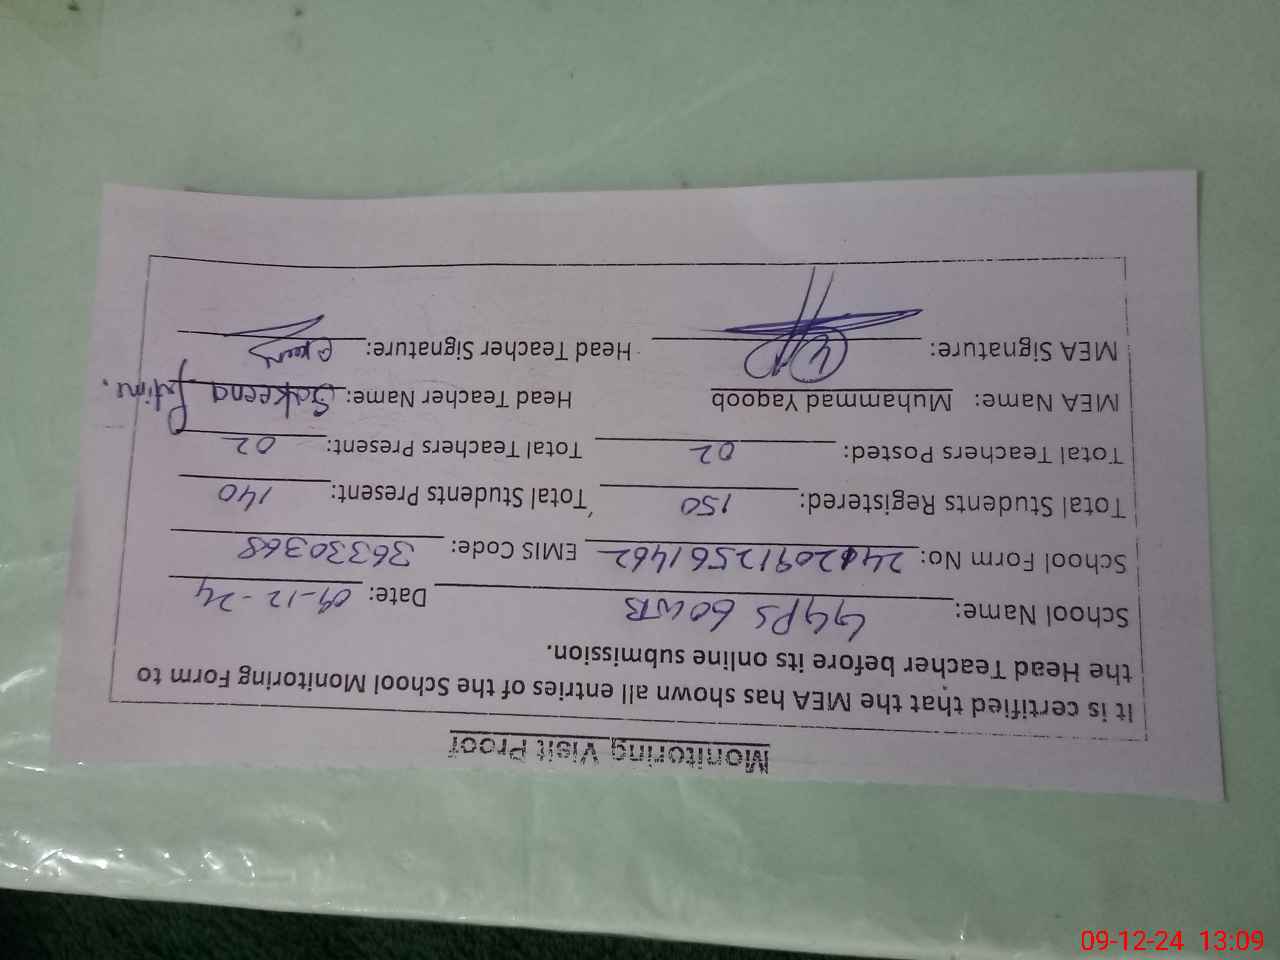 Monitoring Visit Proof
It is certified that the MEA has shown all entries of the School Monitoring Form to
the Head Teacher before its online submission.
School Name: GGPS 60WB Date: 09-12-24
School Form No: 24120912561462 EMIS Code: 36330368
Total Students Registered: 150 Total Students Present: 140
Total Teachers Posted: 02 Total Teachers Present: 02
MEA Name: Muhammad Yaqoob Head Teacher Name: Sakeena
MEA Signature: Head Teacher Signature:
09-12-24 13:09